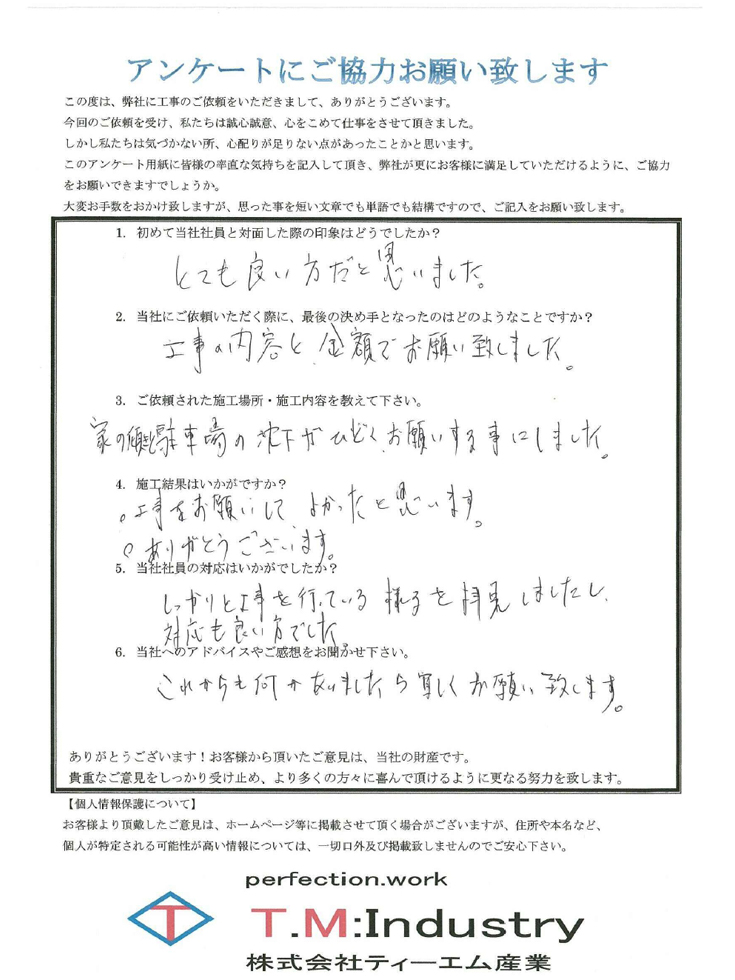 アンケートにご協力お願い致します
この度は、弊社に工事のご依頼をいただきまして、ありがとうございます。
今回のご依頼を受け、私たちは誠心誠意、心をこめて仕事をさせて頂きました。
しかし私たちは気づかない所、心配りが足りない点があったことかと思います。
このアンケート用紙に皆様の率直な気持ちを記入して頂き、弊社が更にお客様に満足していただけるように、ご協力
をお願いできますでしょうか。
大変お手数をおかけ致しますが、思った事を短い文章でも単語でも結構ですので、ご記入をお願い致します。
1. 初めて当社社員と対面した際の印象はどうでしたか？
とても良い方だと思いました。
2. 当社にご依頼いただく際に、最後の決め手となったのはどのようなことですか？
工事の内容と金額でお願い致しました。
3. ご依頼された施工場所・施工内容を教えて下さい。
家の傾き駐車場の沈下がひどくお願いする事にしました。
4. 施工結果はいかがですか？
。工事をお願いして よかったと思います。
。ありがとうございます。
5. 当社社員の対応はいかがでしたか？
しっかりと工事を行っている 様子を拝見しましたし、
対応も良い方でした。
6. 当社へのアドバイスやご感想をお聞かせ下さい。
これからも何かありましたら宜しくお願い致します。
ありがとうございます！お客様から頂いたご意見は、当社の財産です。
貴重なご意見をしっかり受け止め、より多くの方々に喜んで頂けるように更なる努力を致します。
【個人情報保護について】
お客様より頂戴したご意見は、ホームページ等に掲載させて頂く場合がございますが、住所や本名など、
個人が特定される可能性が高い情報については、一切口外及び掲載致しませんのでご安心下さい。
perfection.work
T T.M:Industry
株式会社ティーエム産業